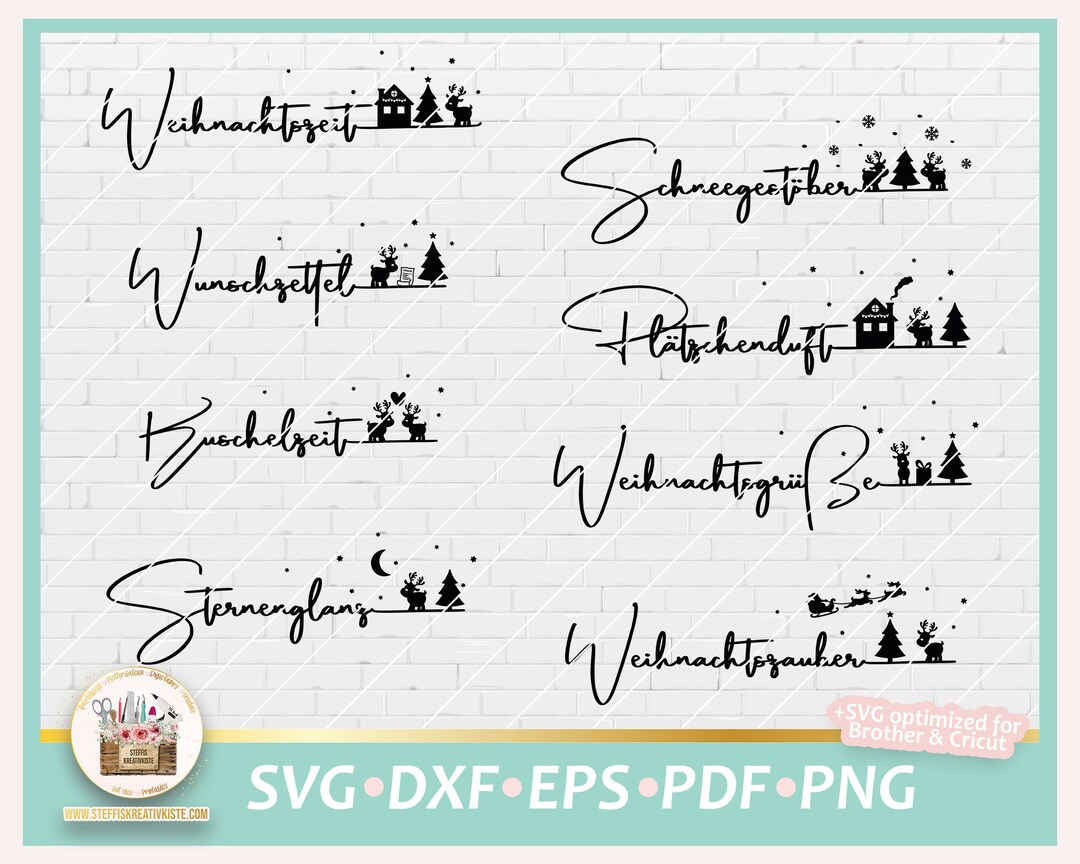 Weihnachtszeit
Schneegestöber
Wunschzettel
Plätzchenduft
Kuschelzeit
Weihnachtsgrüße
Sternenglanz
Weihnachtszauber
+SVG optimized for
Brother & Cricut
STEFFIS
KREATIVKISTE
WWW.STEFFISKREATIVKISTE.COM
SVG•DXF•EPS•PDF•PNG